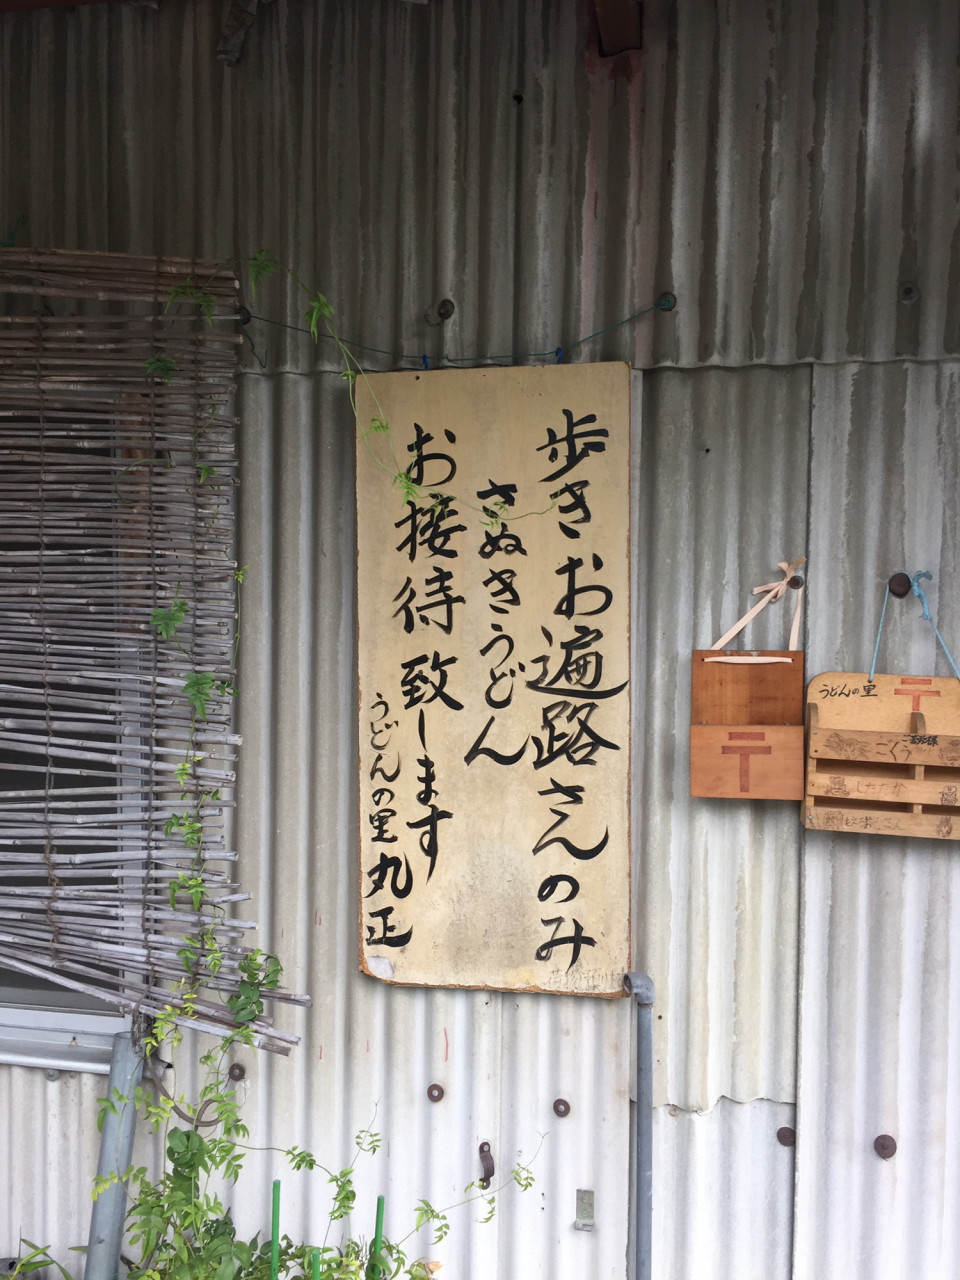 歩きお遍路さんのみ
さぬきうどん
お接待致します
うどんの里 丸正
〒
うどんの里 〒
こくう
したたか